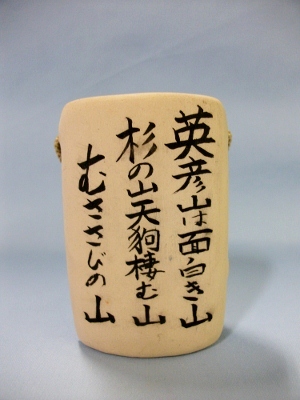 英彦山は面白き山
杉の山天狗棲む山
むささびの山